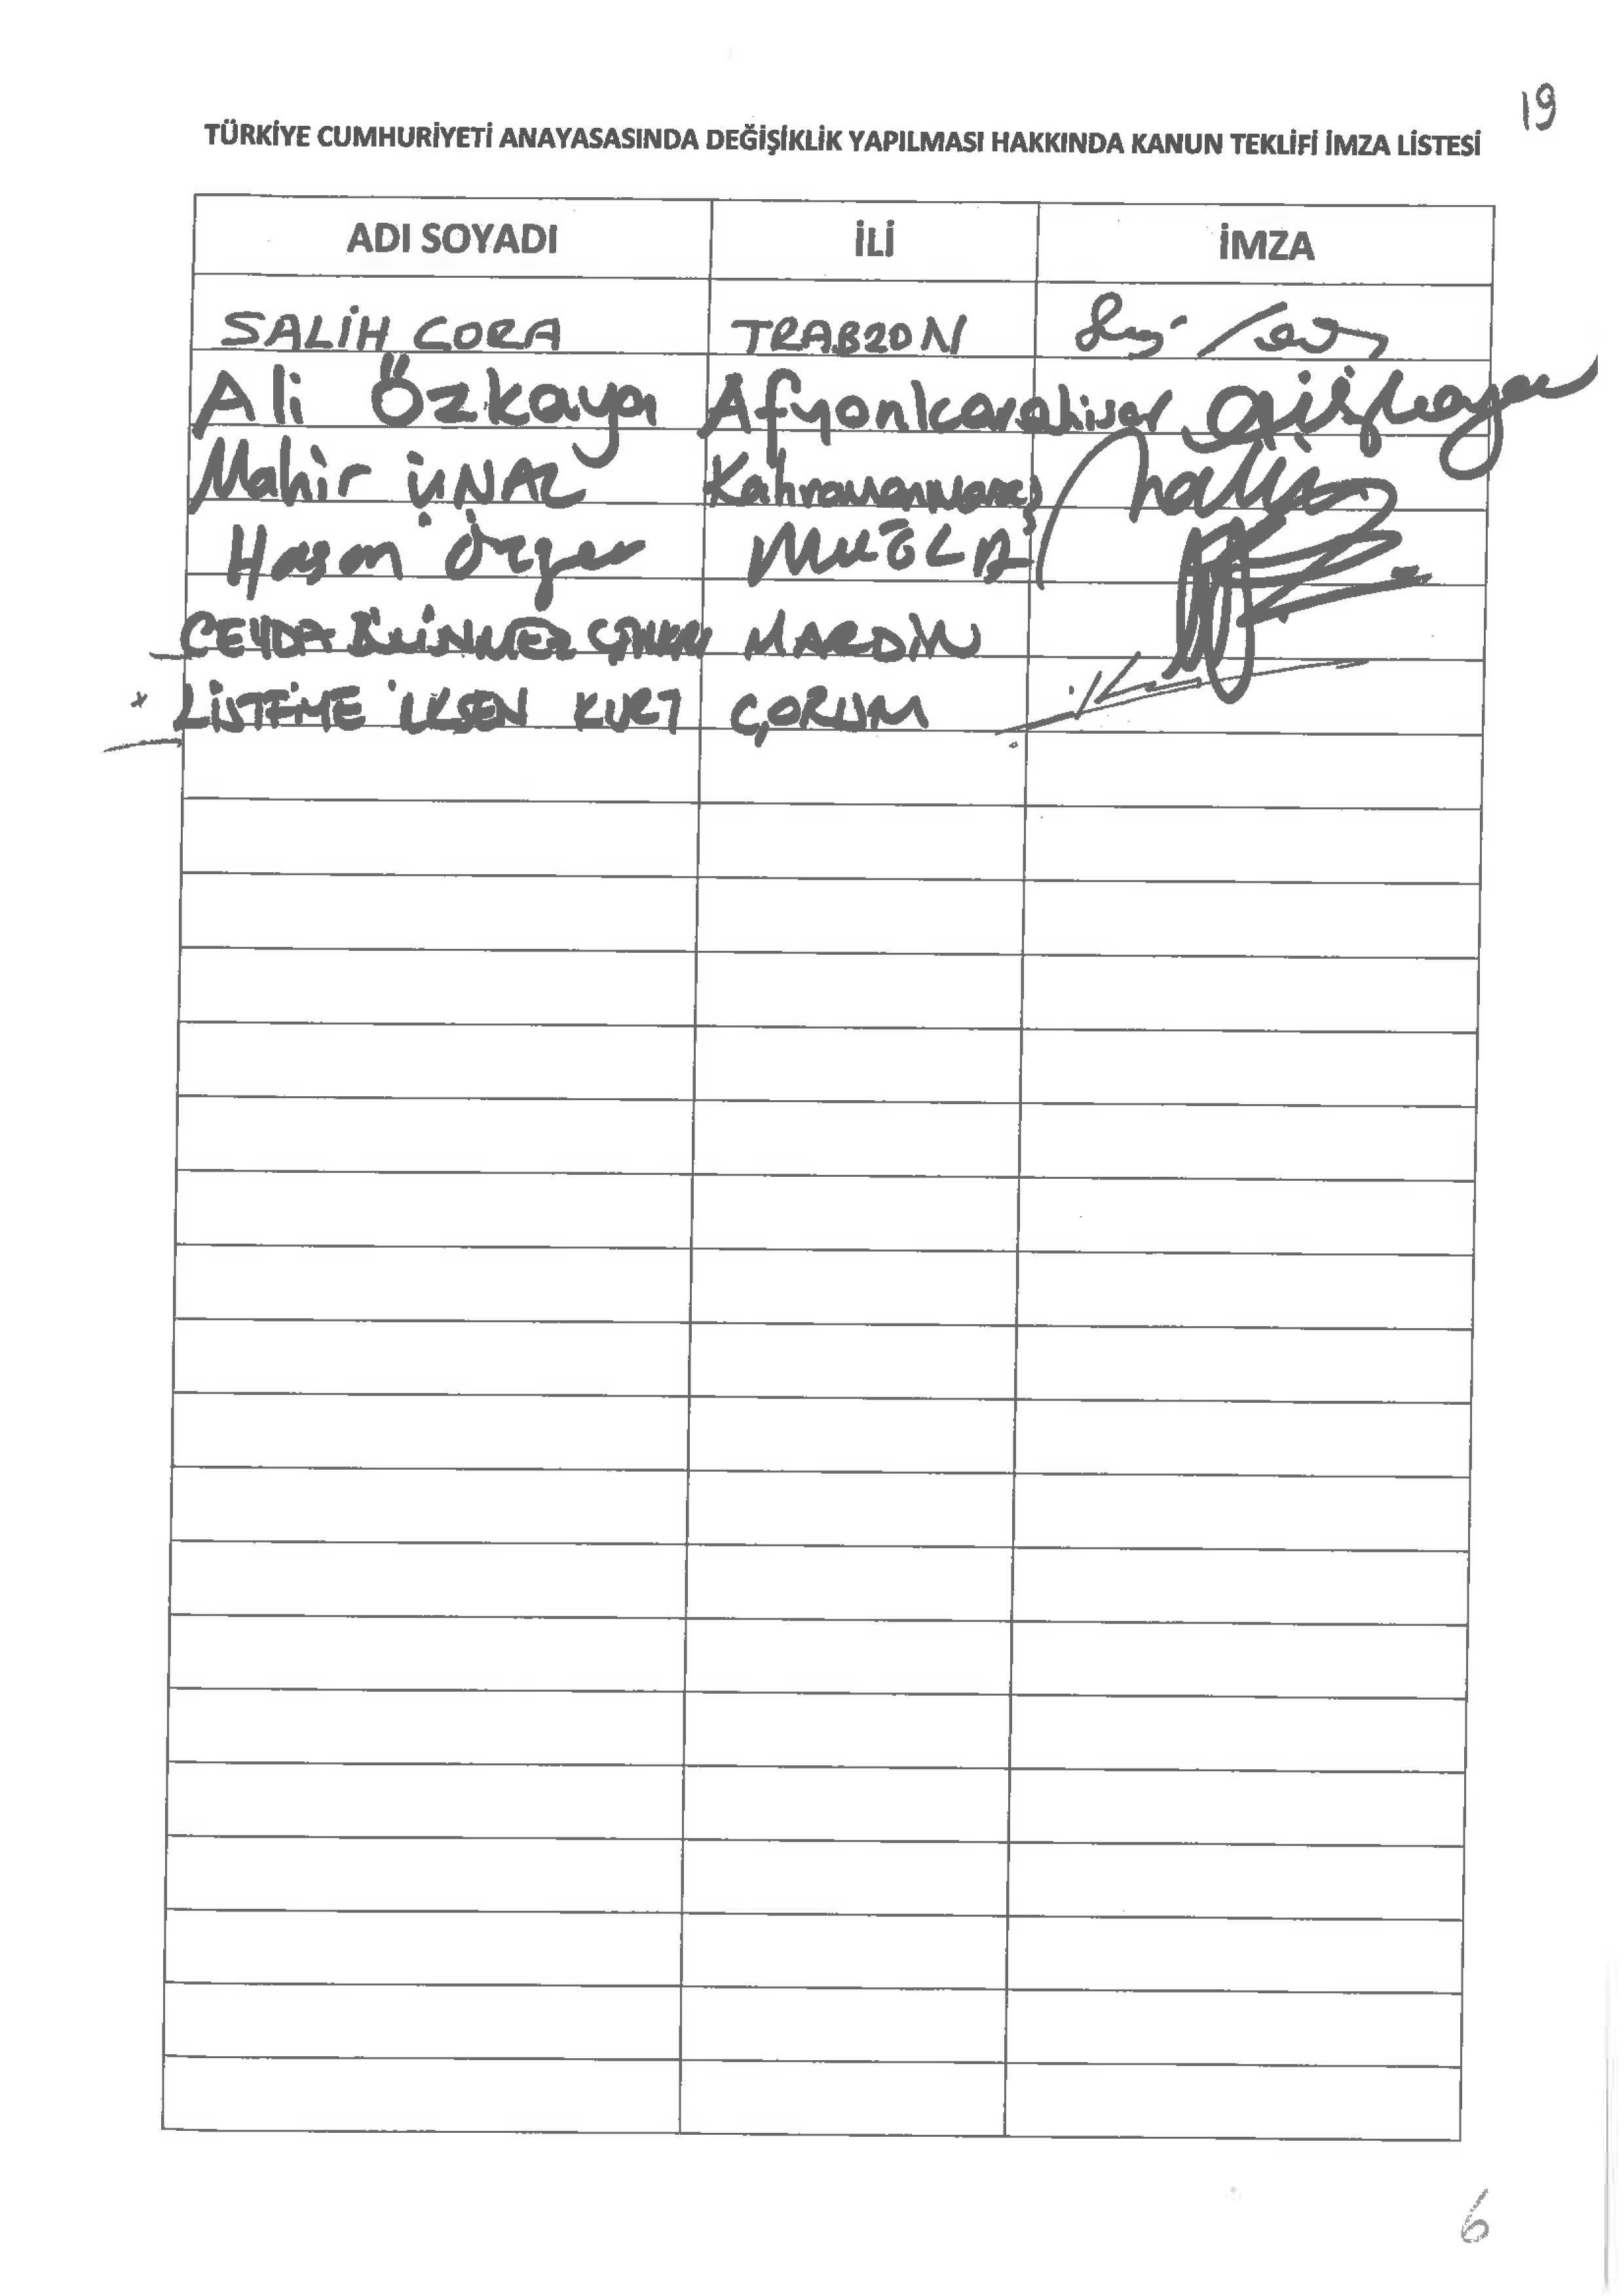 19
TÜRKİYE CUMHURİYETİ ANAYASASINDA DEĞİŞİKLİK YAPILMASI HAKKINDA KANUN TEKLİFİ İMZA LİSTESİ
ADI SOYADI İLİ İMZA
SALİH CORA TRABZON
Ali Özkaya Afyonkarahisar
Mahir ÜNAL Kahramanmaraş
Hasan Özyer MUĞLA
CEYDA BÖLÜNMEZ ÇANKIRI MARDİN
KURT ÇORUM
6